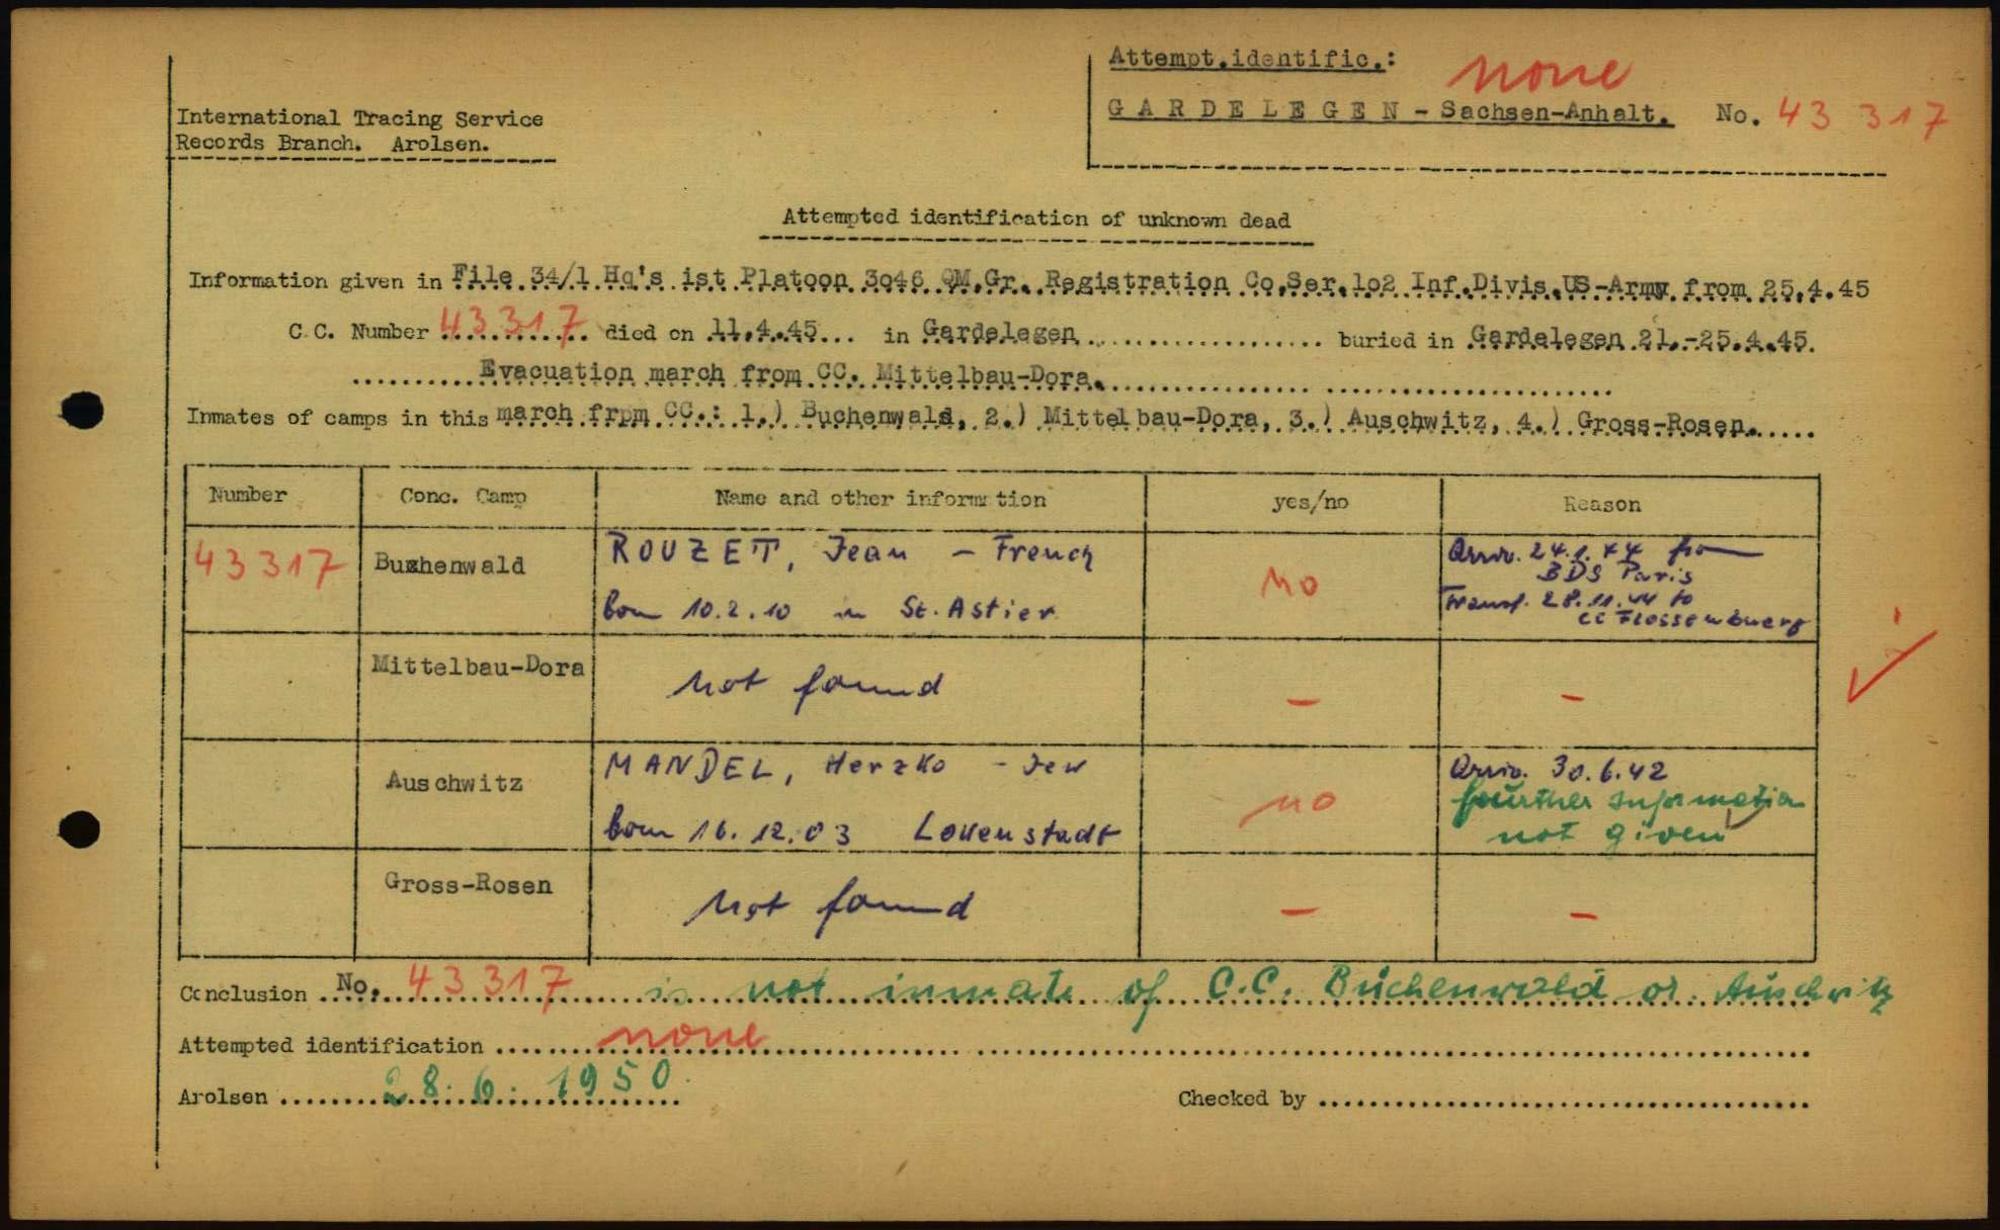 Attempt.identific.: none
GARDELEGEN - Sachsen-Anhalt. No. 43 317
International Tracing Service
Records Branch. Arolsen.
Attempted identification of unknown dead
Information given in File 34/1 Hq's ist Platoon 3o46 QM.Gr. Registration Co.Ser.1o2 Inf.Divis.US-Army from 25.4.45
C.C. Number 43 317 died on 11.4.45... in Gardelegen buried in Gardelegen 21.-25.4.45.
Evacuation march from CC. Mittelbau-Dora.
Inmates of camps in this march frpm CC.: 1.) Buchenwald, 2.) Mittelbau-Dora, 3.) Auschwitz, 4.) Gross-Rosen.
Number Conc. Camp Name and other information yes/no Reason
43 317 Buchenwald ROUZET, Jean - French no Arriv. 24.1.44 from
BDS Paris
born 10.2.10 in St. Astier Transf. 28.11.44 to
CC Flossenbuerg
Mittelbau-Dora not found - -
Auschwitz MANDEL, Herzko - Jew no Arriv. 30.6.42
fourther information
born 16.12.03 not given
Gross-Rosen not found - -
Conclusion No. 43 317 is not inmate of C.C. Buchenwald or Auschwitz
Attempted identification none
Arolsen 28.6.1950 Checked by